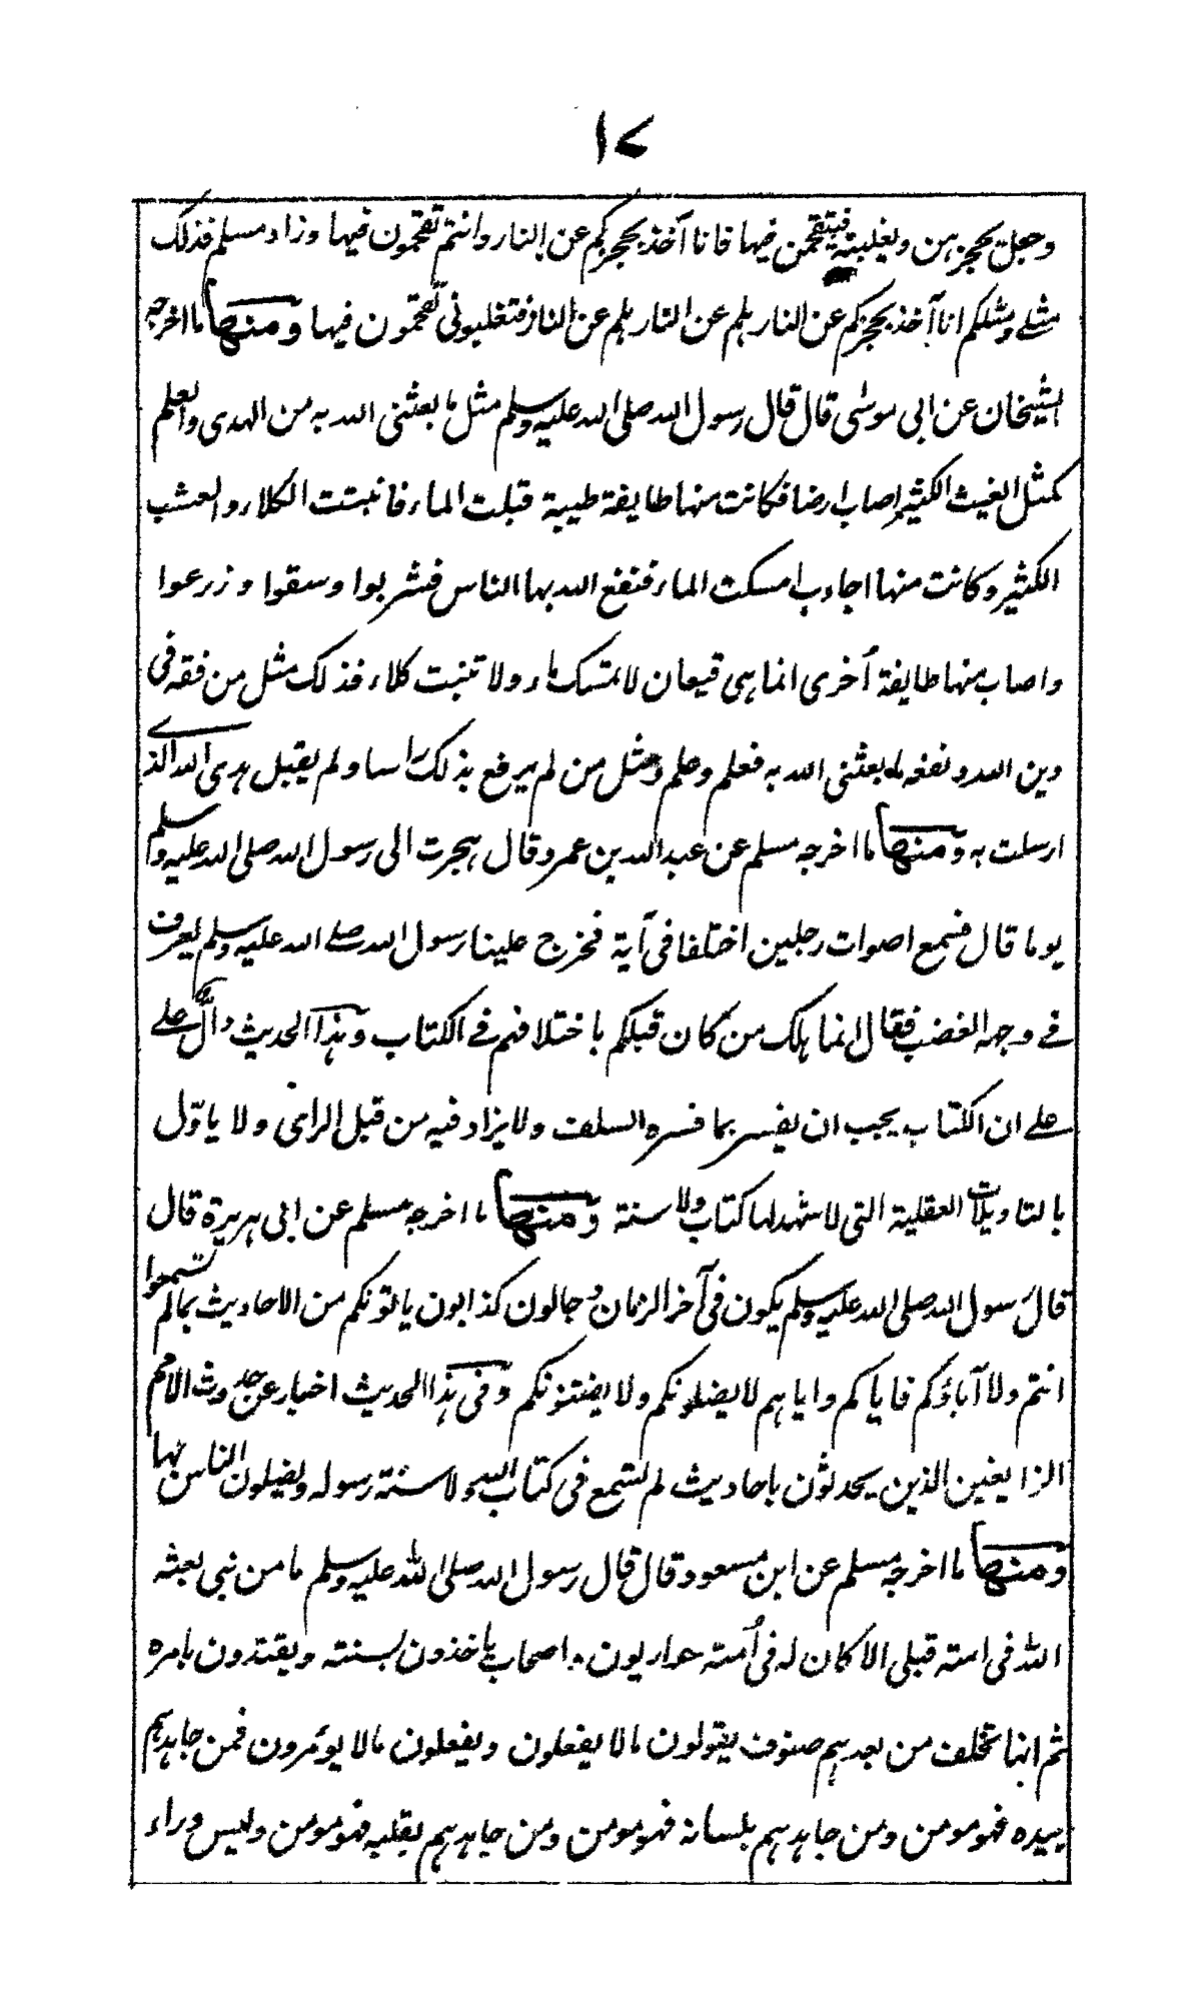 ١٧
وجعل يحجزهن ويغلبنه فيتقحمن فيها فانا آخذ بحجزكم عن النار وانتم تقحمون فيها وزاد مسلم فذلك
مثلي ومثلكم انا آخذ بحجزكم عن النار هلم عن النار هلم عن النار فتغلبوني تقحمون فيها ومنها ما اخرجه
الشيخان عن ابي موسى قال قال رسول الله صلى الله عليه وسلم مثل ما بعثني الله به من الهدى والعلم
كمثل الغيث الكثير اصاب ارضا فكانت منها طايفة طيبة قبلت الماء فانبتت الكلاء والعشب
الكثير وكانت منها اجادب امسكت الماء فنفع الله بها الناس فشربوا وسقوا وزرعوا
واصاب منها طايفة أخرى انما هي قيعان لا تمسك ماء ولا تنبت كلاء فذلك مثل من فقه في
دين الله ونفعه ما بعثني الله به فعلم وعلم ومثل من لم يرفع بذلك راسا ولم يقبل هدى الله الذي
ارسلت به ومنها ما اخرجه مسلم عن عبد الله بن عمرو قال هجرت الى رسول الله صلى الله عليه وسلم
يوما قال فسمع اصوات رجلين اختلفا في آية فخرج علينا رسول الله صلى الله عليه وسلم يعرف
في وجهه الغضب فقال انما هلك من كان قبلكم باختلافهم في الكتاب وهذا الحديث دالّ على
على ان الكتاب يجب ان يفسر بما فسره السلف ولا يزاد فيه من قبل الراى ولا ياوّل
بالتاويلات العقلية التي لا شهد لها كتاب ولا سنة ومنها ما اخرجه مسلم عن ابي هريرة قال
قال رسول الله صلى الله عليه وسلم يكون في آخر الزمان دجالون كذابون ياتونكم من الاحاديث بما لم تسمعوا
انتم ولا آباؤكم فاياكم واياهم لا يضلونكم ولا يفتنونكم وفي هذا الحديث اخبار عن حدوث الامم
الزايغين الذين يحدثون باحاديث لم تسمع في كتاب الله ولا سنة رسوله ويضلون الناس بها
ومنها ما اخرجه مسلم عن ابن مسعود قال قال رسول الله صلى الله عليه وسلم ما من نبي بعثه
الله في امته قبلي الا كان له في أمته حواريون واصحاب ياخذون بسنته ويقتدون بامره
ثم انها تخلف من بعدهم صنوف يقولون مالا يفعلون ويفعلون مالا يؤمرون فمن جاهدهم
بيده فهو مومن ومن جاهدهم بلسانه فهو مومن ومن جاهدهم بقلبه فهو مومن وليس وراء